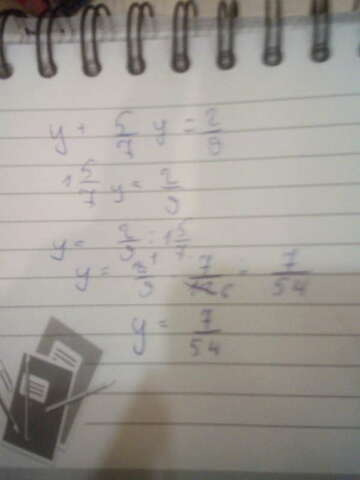 y + 5/7 y = 2/9
1 5/7 y = 2/9
y = 2/9 : 1 5/7
y = 2/9 · 7/12 6 = 7/54
y = 7/54